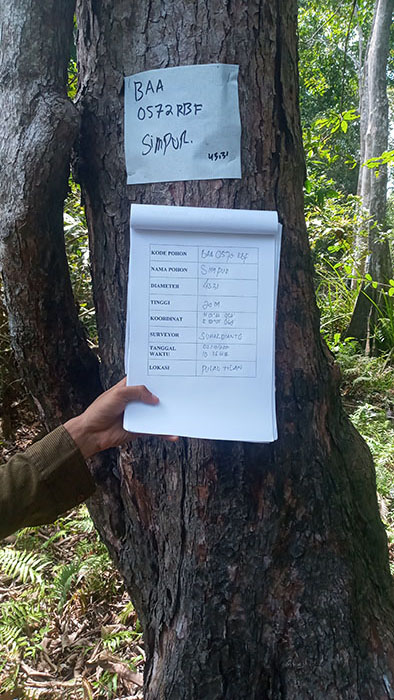 BAA
0572 RBF
Simpur.
45.31
KODE POHON BAA 0572 RBF
NAMA POHON Simpur
DIAMETER 45.31
TINGGI 20 M
KOORDINAT
SURVEYOR SUHARDIANTO
TANGGAL
WAKTU
LOKASI